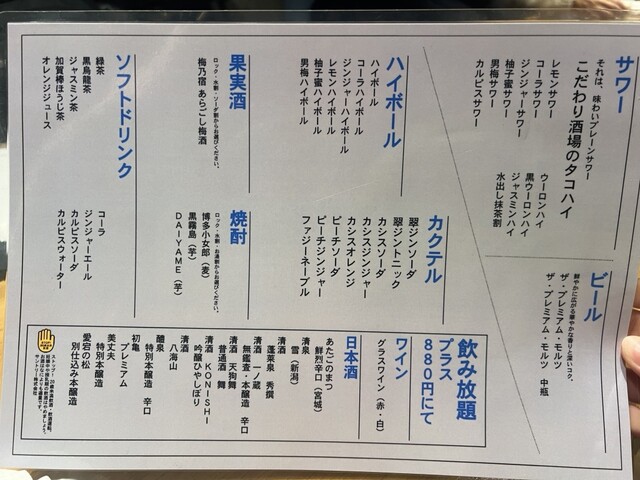 サワー
それは、味わいプレーンサワー
こだわり酒場のタコハイ
レモンサワー
コーラサワー
ジンジャーサワー
柚子蜜サワー
男梅サワー
カルピスサワー
ウーロンハイ
黒ウーロンハイ
ジャスミンハイ
水出し抹茶割
ビール
鮮やかに広がる華やかな香りと深いコク。
ザ・プレミアム・モルツ
ザ・プレミアム・モルツ 中瓶
ハイボール
ハイボール
コーラハイボール
ジンジャーハイボール
レモンハイボール
柚子蜜ハイボール
男梅ハイボール
カクテル
翠ジンソーダ
翠ジントニック
カシスソーダ
カシスジンジャー
カシスオレンジ
ピーチソーダ
ピーチジンジャー
ファジーネーブル
果実酒
ロック・水割・ソーダ割からお選びください。
梅乃宿 あらごし梅酒
焼酎
ロック・水割・お湯割からお選びください。
博多小女郎(麦)
黒霧島(芋)
DAIYAME(芋)
ソフトドリンク
緑茶
黒烏龍茶
ジャスミン茶
加賀棒ほうじ茶
オレンジジュース
コーラ
ジンジャーエール
カルピスソーダ
カルピスウォーター
飲み放題
プラス
880円にて
ワイン
グラスワイン(赤・白)
日本酒
あたごのまつ
鮮烈辛口(宮城)
清泉
雪(新潟)
清酒
蓬莱泉 秀撰
清酒 一ノ蔵
無鑑査・本醸造 辛口
清酒 天狗舞
普通酒 舞
清酒 KONISHI
吟醸ひやしぼり
清酒
八海山
醴泉
特別本醸造 辛口
初亀
プレミアム
美丈夫
特別本醸造
愛宕の松
別仕込み本醸造
サントリー株式会社